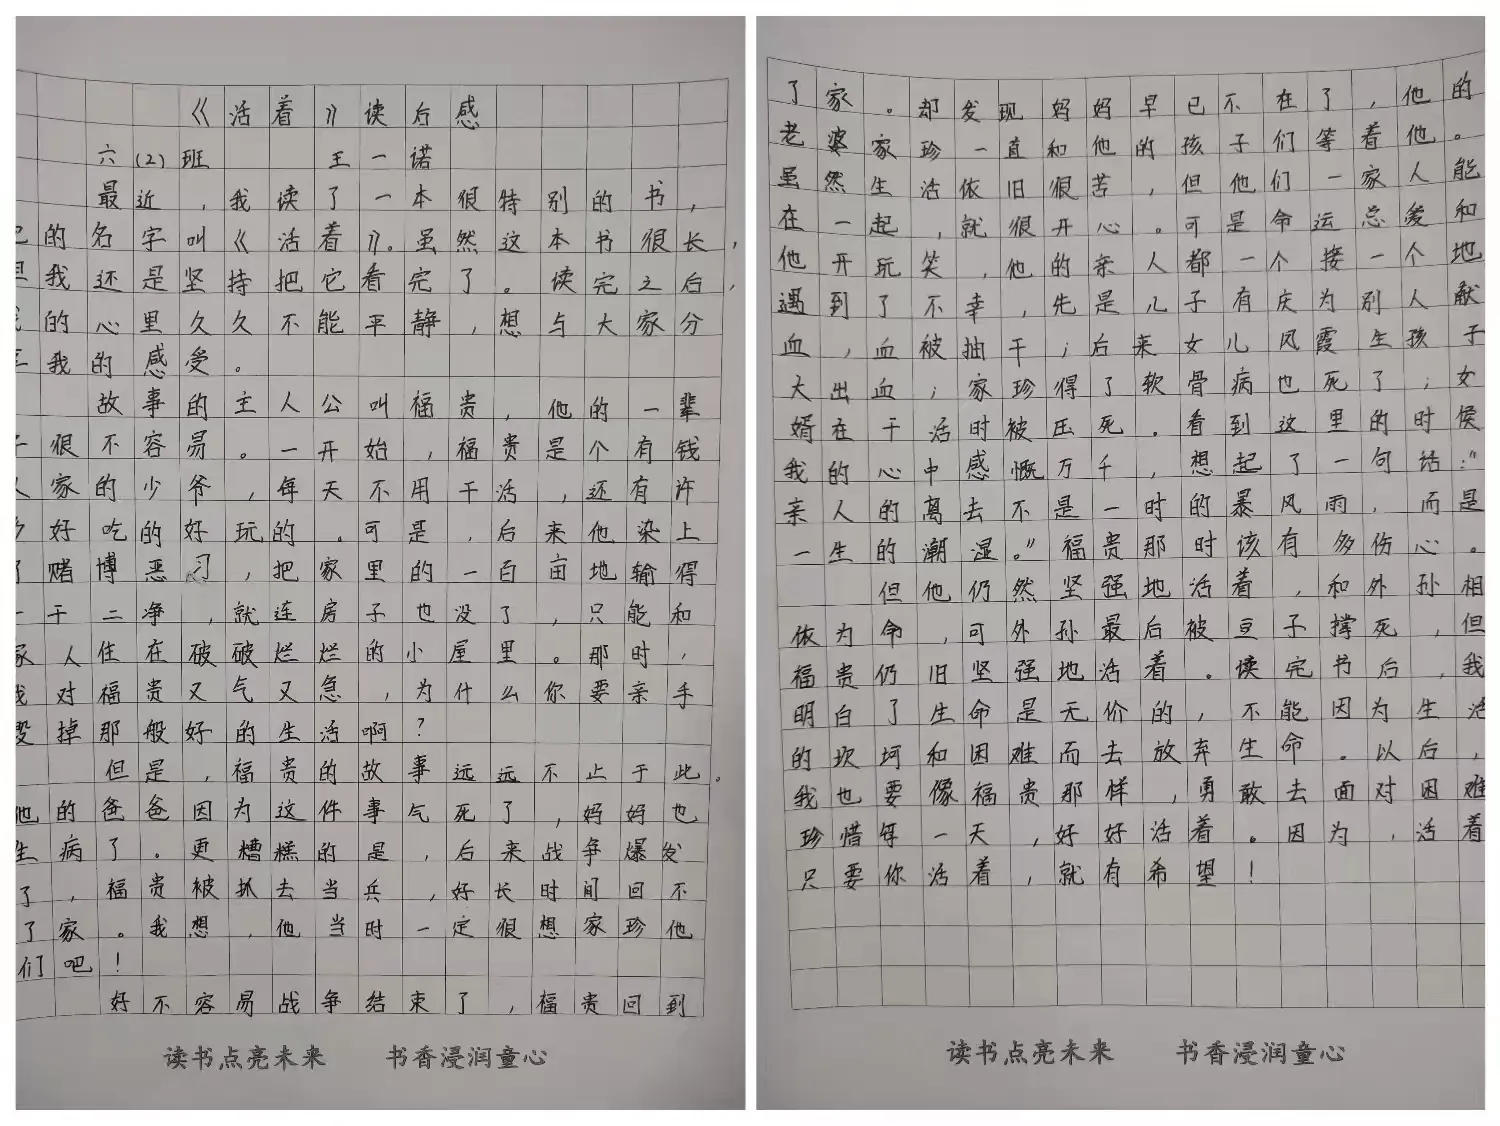 《活着》读后感
六(2)班 王一诺
最近,我读了一本很特别的书,
它的名字叫《活着》。虽然这本书很长,
但我还是坚持把它看完了。读完之后,
我的心里久久不能平静,想与大家分
享我的感受。
故事的主人公叫福贵,他的一辈
子很不容易。一开始,福贵是个有钱
人家的少爷,每天不用干活,还有许
多好吃的好玩的。可是,后来他染上
了赌博恶习,把家里的一百亩地输得
一干二净,就连房子也没了,只能和
家人住在破破烂烂的小屋里。那时,
我对福贵又气又急,为什么你要亲手
毁掉那般好的生活啊?
但是,福贵的故事远远不止于此。
他的爸爸因为这件事气死了,妈妈也
生病了。更糟糕的是,后来战争爆发
了,福贵被抓去当兵,好长时间回不
了家。我想,他当时一定很想家珍他
们吧!
好不容易战争结束了,福贵回到
读书点亮未来 书香浸润童心
了家。却发现妈妈早已不在了,他的
老婆家珍一直和他的孩子们等着他。
虽然生活依旧很苦,但他们一家人能
在一起,就很开心。可是命运总爱和
他开玩笑,他的亲人都一个接一个地
遇到了不幸,先是儿子有庆为别人献
血,血被抽干;后来女儿凤霞生孩子
大出血;家珍得了软骨病也死了;女
婿在干活时被压死。看到这里的时候
我的心中感慨万千,想起了一句话:“
亲人的离去不是一时的暴风雨,而是
一生的潮湿。”福贵那时该有多伤心。
但他仍然坚强地活着,和外孙相
依为命,可外孙最后被豆子撑死,但
福贵仍旧坚强地活着。读完书后,我
明白了生命是无价的,不能因为生活
的坎坷和困难而去放弃生命。以后,
我也要像福贵那样,勇敢去面对困难
珍惜每一天,好好活着。因为,活着
只要你活着,就有希望!
读书点亮未来 书香浸润童心